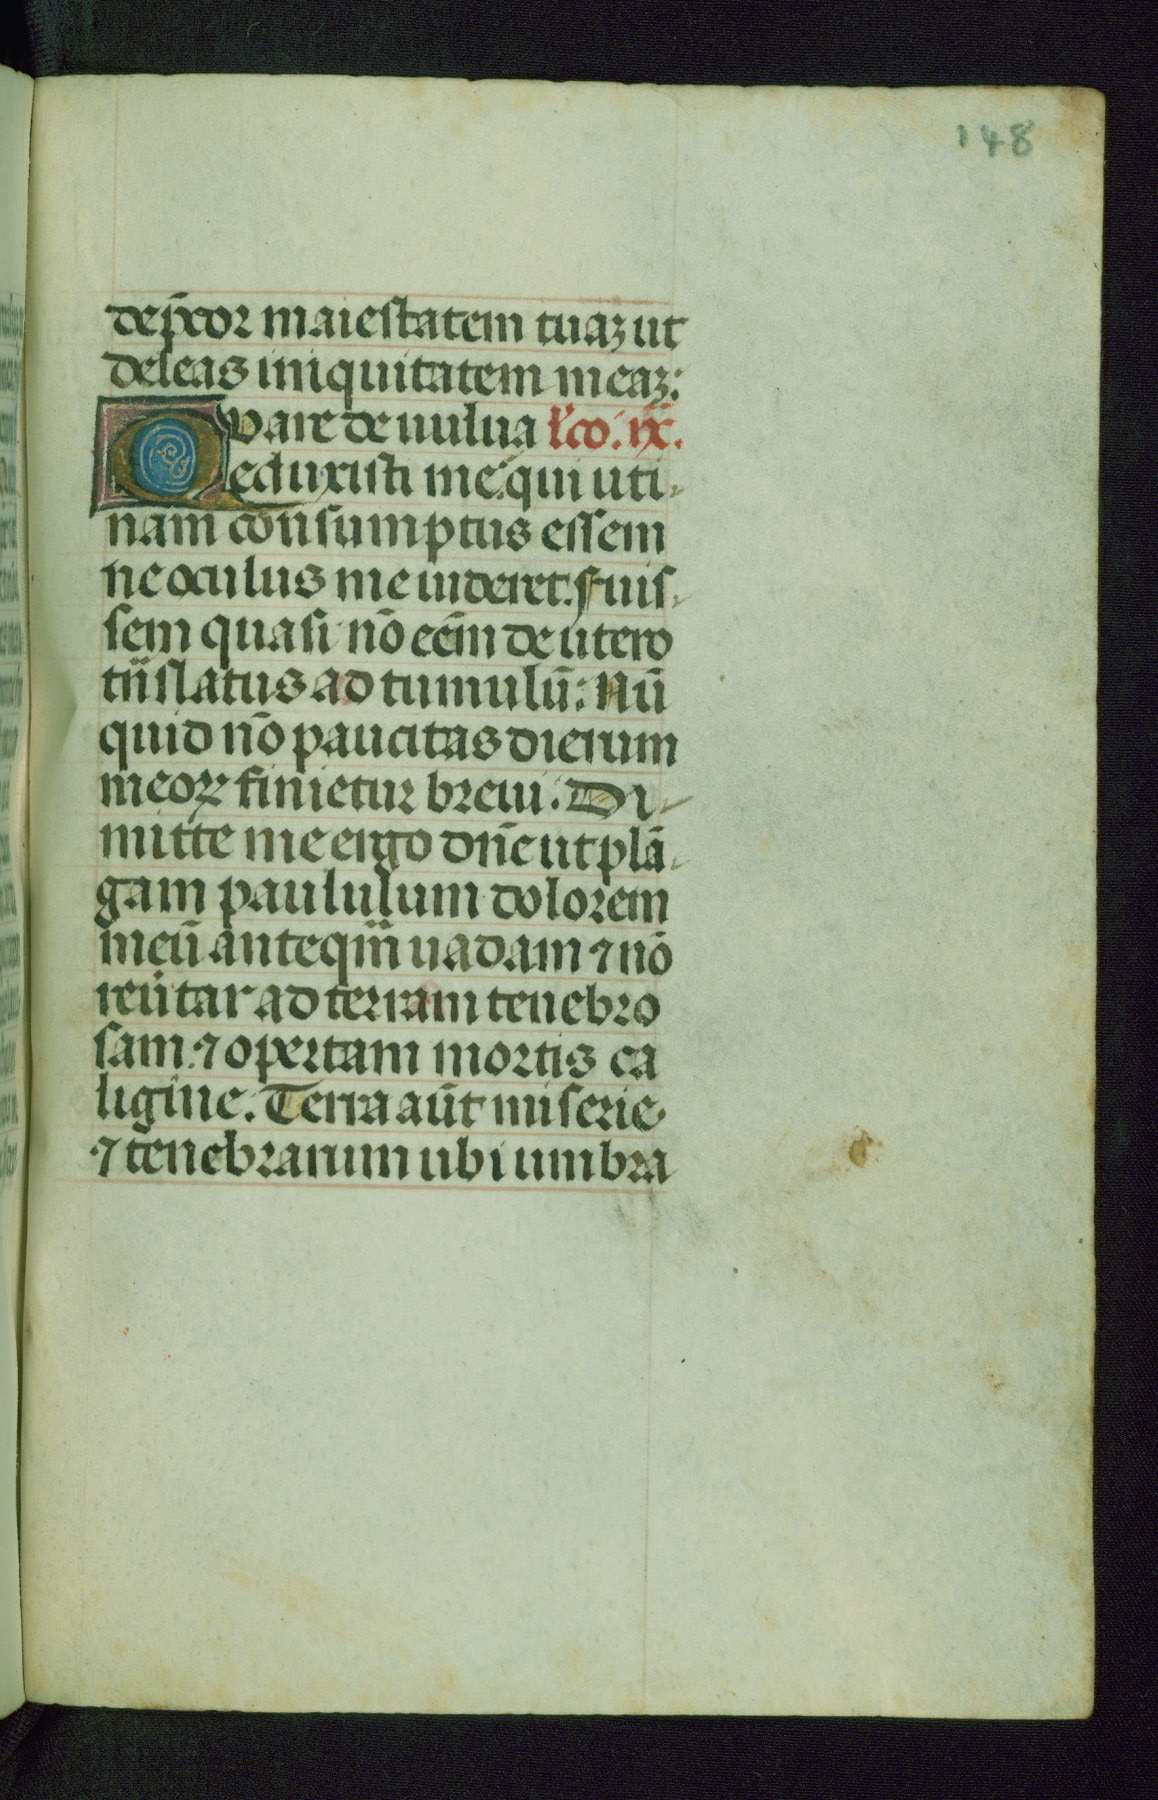 148
dep̄cor maiestatem tuaꝫ ut
deleas iniquitatem meaꝫ:
Quare de uulua l̄co. ix.
eduxisti me: qui uti-
nam consumptus essem
ne oculus me uideret. fuis-
sem quasi nō eēm de utero
tn̄slatus ad tumulū: Nū
quid nō paucitas dierum
meoꝝ finietur breui: Di-
mitte me ergo dn̄e ut plā-
gam paululum dolorem
meū anteqm̄ uadam ⁊ nō
reūtar ad terram tenebro
sam ⁊ opertam mortis ca
ligine. Terra aūt miserie
⁊ tenebrarum ubi umbra